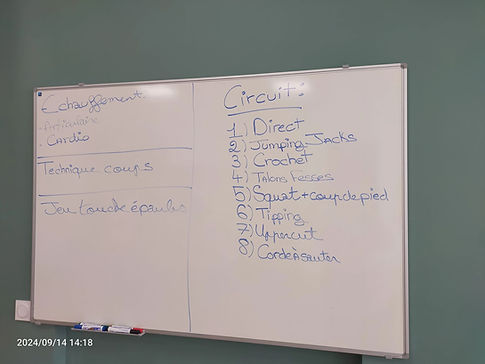 Echauffement:
- Articulaire
- Cardio
Technique coups
Jeu touche épaules
Circuit:
1) Direct
2) Jumping-Jacks
3) Crochet
4) Talons Fesses
5) Squat + coup de pied
6) Tipping
7) Uppercut
8) Corde à sauter
2024/09/14 14:18